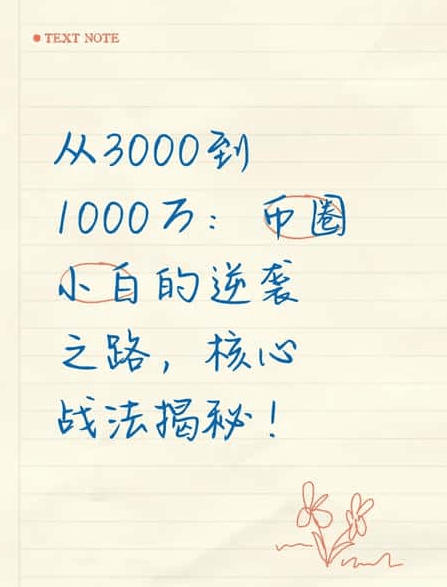 TEXT NOTE
从3000到
1000万：币圈
小白的逆袭
之路，核心
战法揭秘！